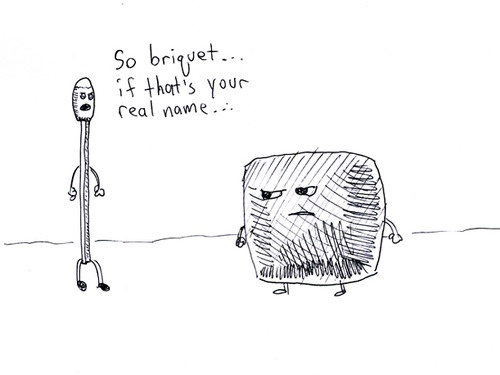 So briquet...
if that's your
real name...